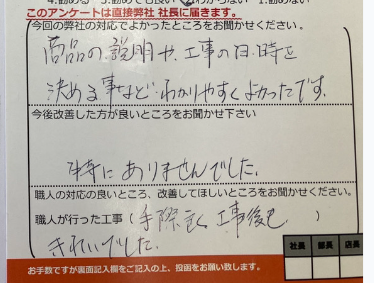 4.勧める 3.勧めても良い 2.わからない 1.勧めない
このアンケートは直接弊社 社長に届きます。
今回の弊社の対応でよかったところをお聞かせください。
商品の説明や、工事の日、時を
決める事など、わかりやすくよかったです。
今後改善した方が良いところをお聞かせ下さい
特にありませんでした。
職人の対応の良いところ、改善してほしいところをお聞かせください。
職人が行った工事(手際良く工事後も)
きれいでした。
社長 部長 店長
お手数ですが裏面記入欄をご記入の上、投函をお願い致します。